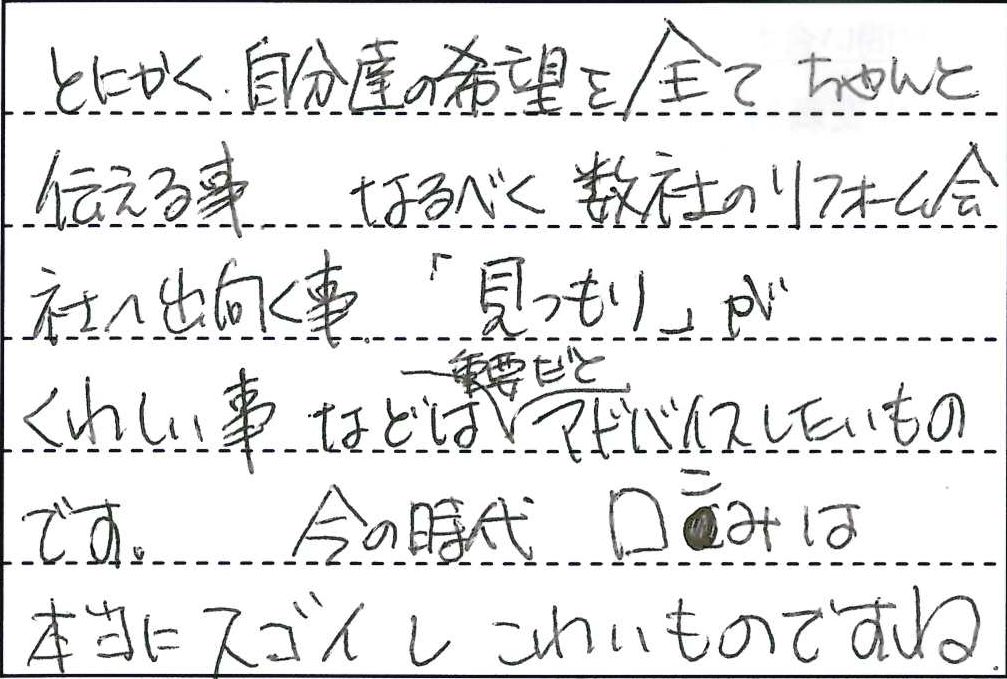 とにかく、自分達の希望を全て ちゃんと
伝える事 なるべく 数社のリフォーム会
社へ出向く事.「見つもり」が
くわしい事 などは 一番重要だと アドバイスしたいもの
です。 今の時代 口コみは
本当にスゴイし こわいものですね.